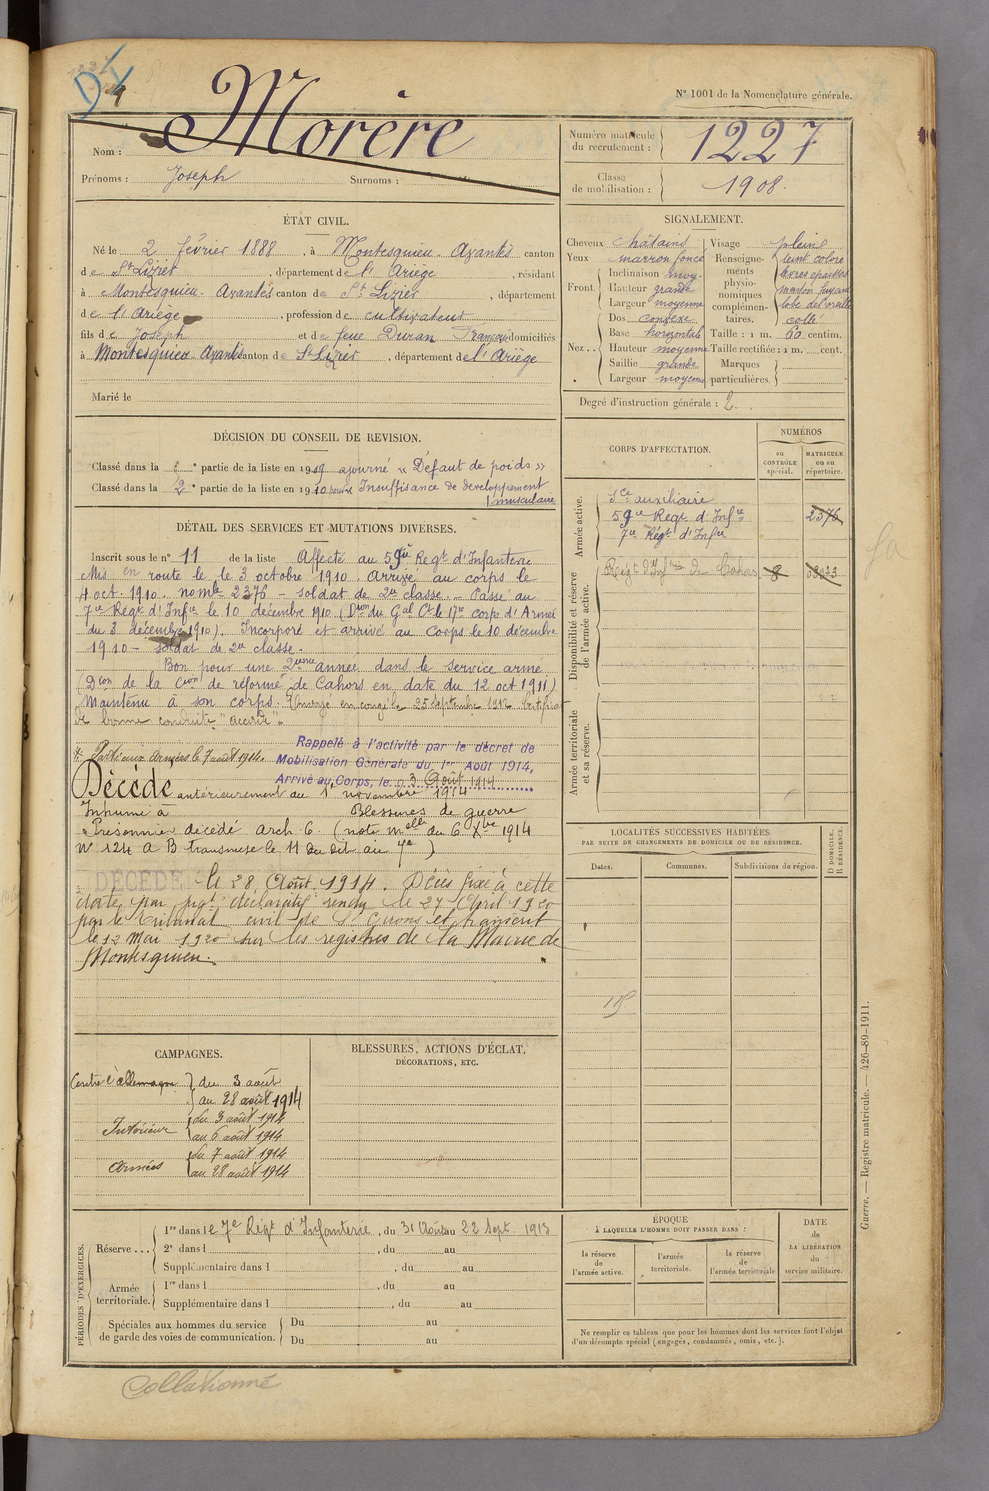 N° 1001 de la Nomenclature générale.
Nom : Morère
Prénoms : Joseph Surnoms :
Numéro matricule du recrutement : 1227
Classe de mobilisation : 1908.
ÉTAT CIVIL.
Né le 2 février 1888, à Montesquieu-Avantès canton
de St Lizier, département de l'Ariège, résidant
à Montesquieu-Avantès canton de St Lizier, département
de l'Ariège, profession de cultivateur
fils de Joseph et de feue Duran Françoise domiciliés
à Montesquieu-Avantès canton de St Lizier, département de l'Ariège
Marié le
SIGNALEMENT.
Cheveux châtains
Yeux marron foncé
Front Inclinaison moy.
Hauteur grande
Largeur moyenne
Nez Dos convexe
Base horizontale
Hauteur moyenne
Saillie grande
Largeur moyenne
Visage pleine
Renseignements physionomiques complémentaires. teint coloré
lèvres épaisses
menton fuyant
lobe de l'oreille
collé
Taille : 1 m. 60 centim.
Taille rectifiée : 1 m. cent.
Marques particulières.
Degré d'instruction générale : 2.
DÉCISION DU CONSEIL DE REVISION.
Classé dans la partie de la liste en 1909 ajourné « Défaut de poids »
Classé dans la 2e partie de la liste en 1910 Insuffisance de développement
musculaire
DÉTAIL DES SERVICES ET MUTATIONS DIVERSES.
Inscrit sous le n° 11 de la liste Affecté au 59e Regt d'Infanterie
Mis en route le le 3 octobre 1910. Arrivé au corps le
4 oct. 1910. nomle 2376 - soldat de 2e classe. - Passé au
7e Régt d'Infie le 10 décembre 1910 (Dion du Gal Ct le 17e corps d'Armée
du 3 décembre 1910). Incorporé et arrivé au corps le 10 décembre
1910 - soldat de 2e classe.
Bon pour une 2ème année dans le service armé
(Dion de la Cion de réforme de Cahors en date du 12 oct 1911)
Maintenu à son corps. Envoyé en congé le 25 septembre 1912 Certificat
de bonne conduite "accordé".
Rappelé à l'activité par le décret de
Mobilisation Générale du 1er Août 1914,
Arrivé au Corps, le 3 Août 1914
Parti aux Armées le 7 août 1914.
Décédé antérieurement au 1er novembre 1914
Inhumé à Blessures de guerre
Prisonnier décédé arch 6. (note melle du 6 Xbre 1914
N° 124 A B transmise le 11 du dit au 7e)
DÉCÉDÉ le 28 Août 1914. Décès fixé à cette
date par jugt déclaratif rendu le 27 Avril 1920
par le Tribunal civil de St Girons et transcrit
le 12 Mai 1920 sur les registres de la Mairie de
Montesquieu.
CORPS D'AFFECTATION.
NUMÉROS
au CONTRÔLE spécial.
MATRICULE ou au répertoire.
Armée active.
Sce auxiliaire
59e Regt d'Infie 2376
7e Régt d'Infie
Disponibilité et réserve de l'armée active.
Regt d'Infie de Cahors 8
Armée territoriale et sa réserve.
LOCALITÉS SUCCESSIVES HABITÉES
PAR SUITE DE CHANGEMENTS DE DOMICILE OU DE RÉSIDENCE.
Dates. Communes. Subdivisions de région. D DOMICILE. R RÉSIDENCE.
CAMPAGNES.
Contre l'Allemagne du 3 août
au 28 août 1914
Intérieur du 3 août 1914
au 6 août 1914
Armées du 7 août 1914
au 28 août 1914
BLESSURES, ACTIONS D'ÉCLAT,
DÉCORATIONS, ETC.
PÉRIODES D'EXERCICES.
Réserve ... 1re dans le 7e Régt d'Infanterie, du 31 Août au 22 Sept. 1913
2e dans l , du au
Supplémentaire dans l , du au
Armée territoriale. 1re dans l , du au
Supplémentaire dans l , du au
Spéciales aux hommes du service de garde des voies de communication. Du au
Du au
ÉPOQUE
À LAQUELLE L'HOMME DOIT PASSER DANS :
la réserve de l'armée active.
l'armée territoriale.
la réserve de l'armée territoriale
DATE de LA LIBÉRATION du service militaire.
Ne remplir ce tableau que pour les hommes dont les services font l'objet
d'un décompte spécial (engagés, condamnés, omis, etc.).
Guerre. — Registre matricule. — 426-89-1911.
Collationné